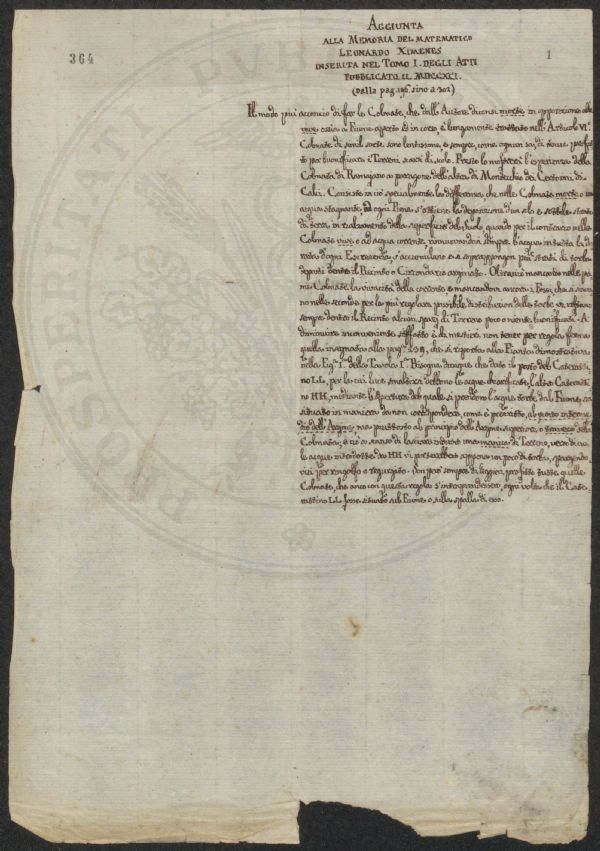 364
1
AGGIUNTA
ALLA MEMORIA DEL MATEMATICO
LEONARDO XIMENES
INSERITA NEL TOMO I. DEGLI ATTI
PUBBLICATO IL MDCCXCI.
(Dalla pag. 196. sino a 302)
Il modo più acconcio di far le Colmate, che dall'Autore diconsi morte in opposizione alle
vive ossia a Fiume aperto ed in corso, è lungamente nell'Articolo VI.
Colmate di simil sorte sono lentissime, e sempre, come ognun sa, di
per bonificare i Terreni scarsi di scolo. Presto lo l'esperienza della
Colmata di Ramajano a paragone dell'altra di Montecchio de' Cerroni di
Calci. Consiste in ciò specialmente la differenza, che nelle Colmate morte o in
acqua stagnante, ad ogni Piena s'ottiene la deposizione d'un solo e sottile strato
di terra, in rialzamento della superficie del suolo, quando per il contrario nelle
Colmate vive o ad acqua corrente, rinnovandosi sempre l'acqua
d'ogni Escrescenza, s'accumulano e si soprappongon più strati di torba
depositi dentro il Recinto o Circondario arginato. Oltracciò mancando nelle
me Colmate la vivacità della corrente e mancandovi ancora i Fossi, che
no nelle seconde per la più regolare possibile distribuzion delle torbe,
sempre dentro il Recinto alcuni spazi di Terreno poco o niente bonificati. A
diminuire inconveniente siffatto è di mestieri non tener per regola ferma
quella insegnata alla pag. 239, che si riporta alla Pianta dimostrativa
nella Fig. I. della Tavola I. Bisogna dunque che dato il posto del
no LL, per la cui luce smaltir dettono le acque chiarificate, l'altro
no HH, mediante l'apertura del quale si prendono l'acque torbe dal Fiume, sia
situato in maniera da non corrispondere, come è prescritto, al punto interme
dio dell'Argine, ma piuttosto al principio dell'Argine superiore, o della
Colmata; e ciò a scanso di lasciare indietro una porzione di Terreno, verso di cui
le acque introdotte da HH vi porterebbero appena un poco di torba, spargendo
visi per ringolfo o rigurgito. Son però sempre di leggieri profitto tutte quelle
Colmate, che anco con questa regola s'intraprendessero, ogni volta che il
LL fosse situato sul Fiume o sulla spalla di esso.